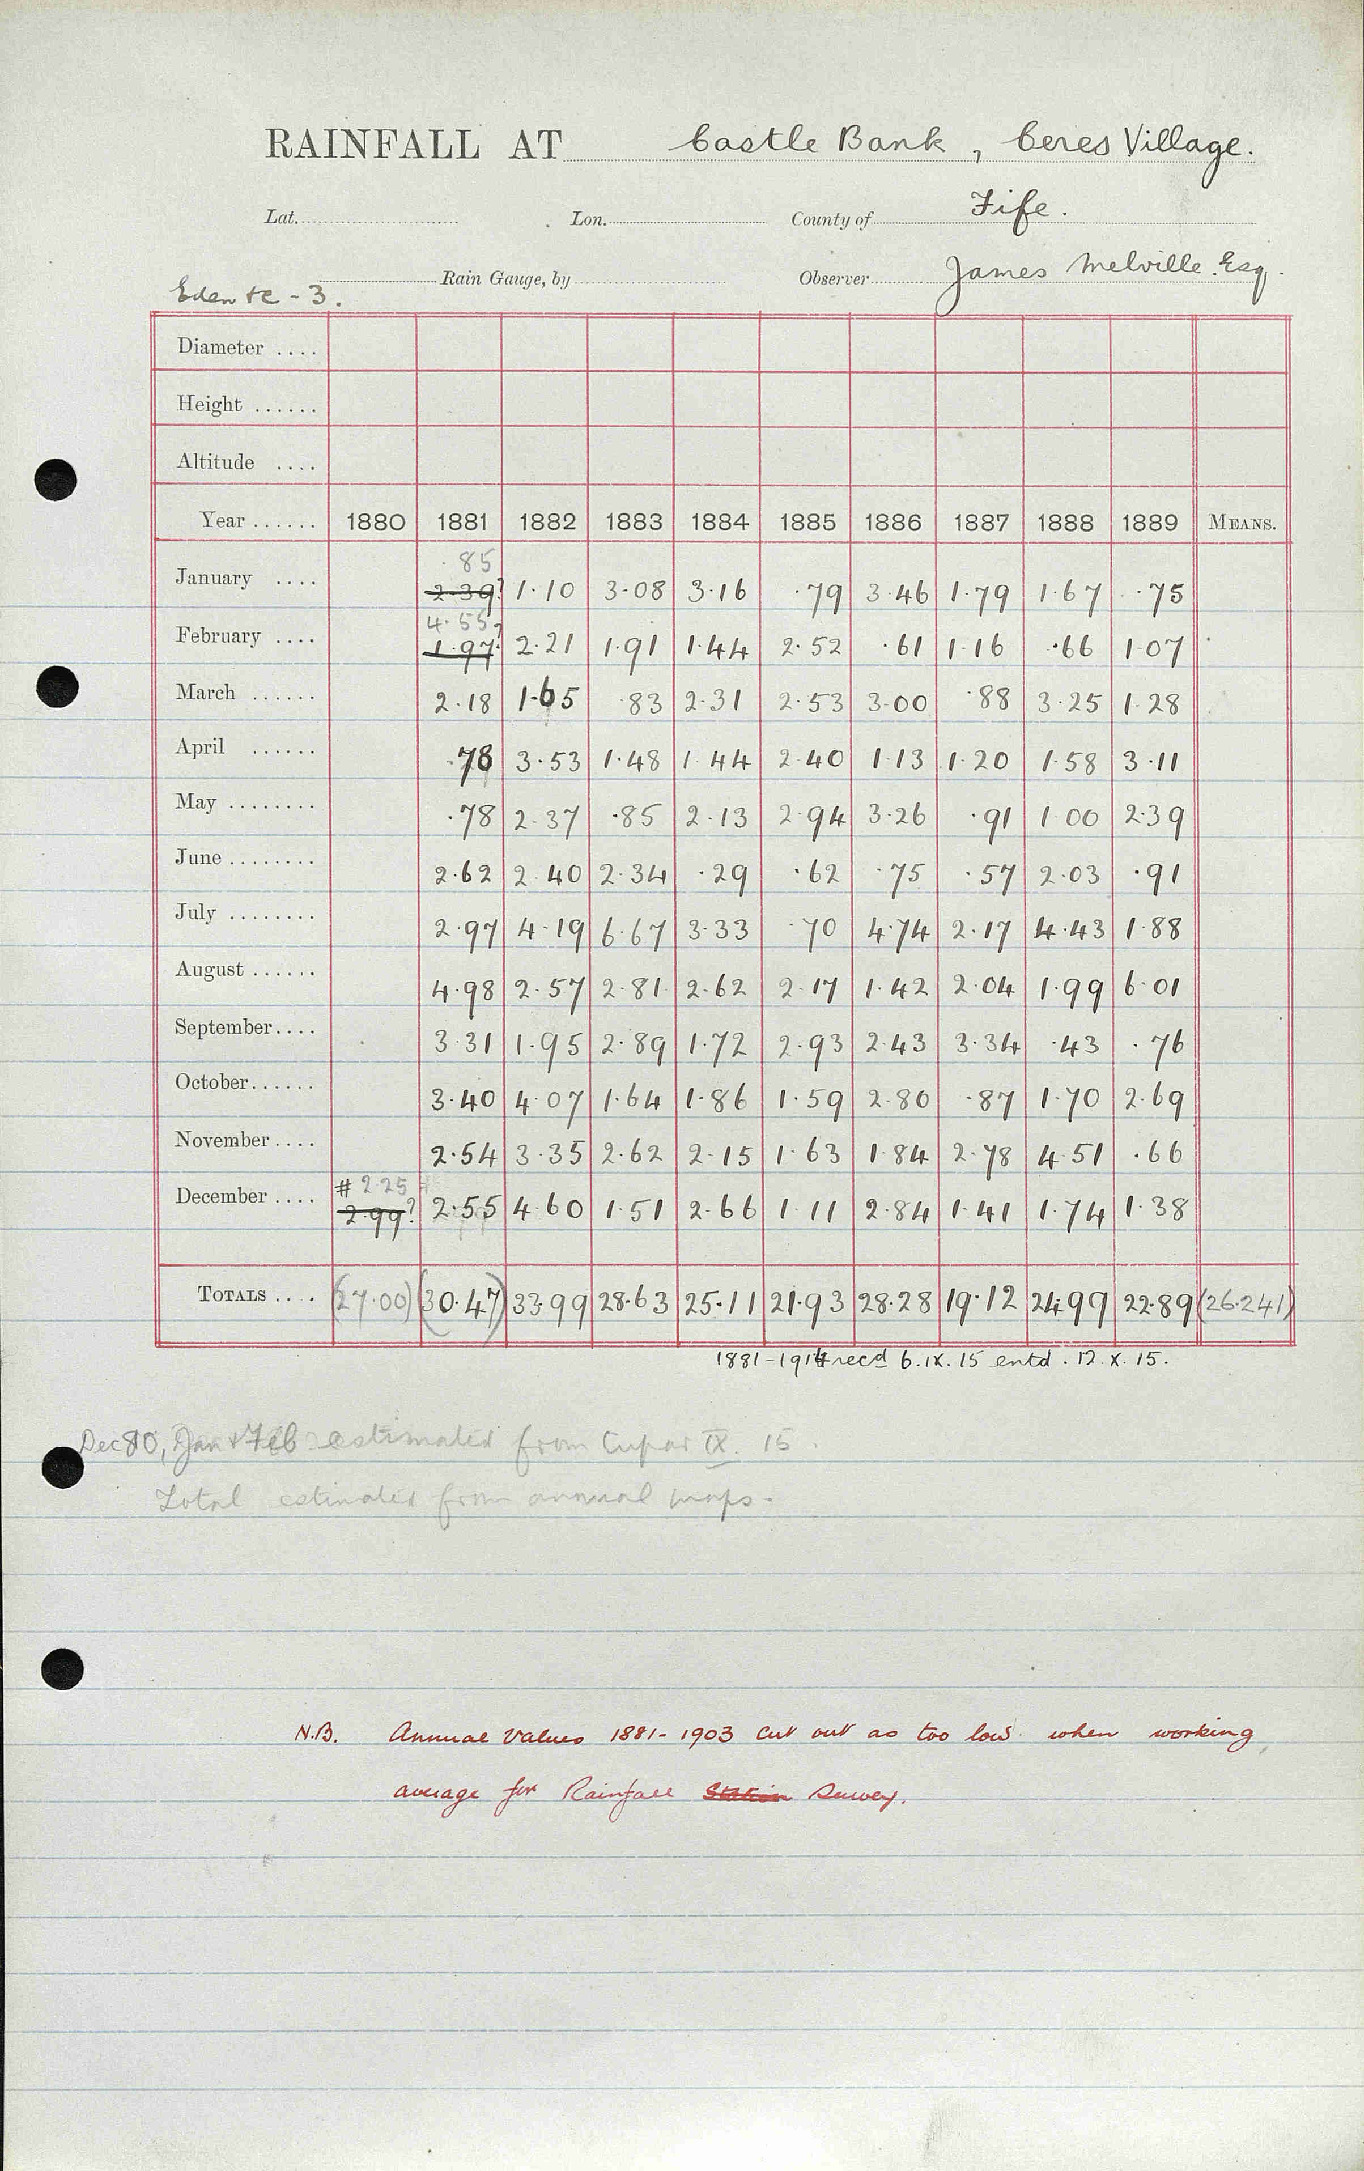 RAINFALL AT Castle Bank, Ceres Village.
Lat. Lon. County of Fife.
Eden &c - 3. Rain Gauge, by Observer James Melville Esq.
Diameter ....
Height ......
Altitude ....
Year ...... 1880 1881 1882 1883 1884 1885 1886 1887 1888 1889 MEANS.
.85
January .... 2.39? 1.10 3.08 3.16 .79 3.46 1.79 1.67 .75
4.55
February .... 1.97? 2.21 1.91 1.44 2.52 .61 1.16 .66 1.07
March ...... 2.18 1.65 .83 2.31 2.53 3.00 .88 3.25 1.28
April ...... .78 3.53 1.48 1.44 2.40 1.13 1.20 1.58 3.11
May ........ .78 2.37 .85 2.13 2.94 3.26 .91 1.00 2.39
June ........ 2.62 2.40 2.34 .29 .62 .75 .57 2.03 .91
July ........ 2.97 4.19 6.67 3.33 .70 4.74 2.17 4.43 1.88
August ...... 4.98 2.57 2.81 2.62 2.17 1.42 2.04 1.99 6.01
September .... 3.31 1.95 2.89 1.72 2.93 2.43 3.34 .43 .76
October ...... 3.40 4.07 1.64 1.86 1.59 2.80 .87 1.70 2.69
November .... 2.54 3.35 2.62 2.15 1.63 1.84 2.78 4.51 .66
# 2.25
December .... 2.99? 2.55 4.60 1.51 2.66 1.11 2.84 1.41 1.74 1.38
TOTALS .... (27.00) (30.47) 33.99 28.63 25.11 21.93 28.28 19.12 24.99 22.89 (26.241)
1881-1914 recd 6.IX.15 entd. 12.X.15.
Dec 80, Jan & Feb estimated from Cupar IX. 15.
Total estimated from annual maps.
N.B. Annual Values 1881-1903 cut out as too low when working
average for Rainfall Station Survey.